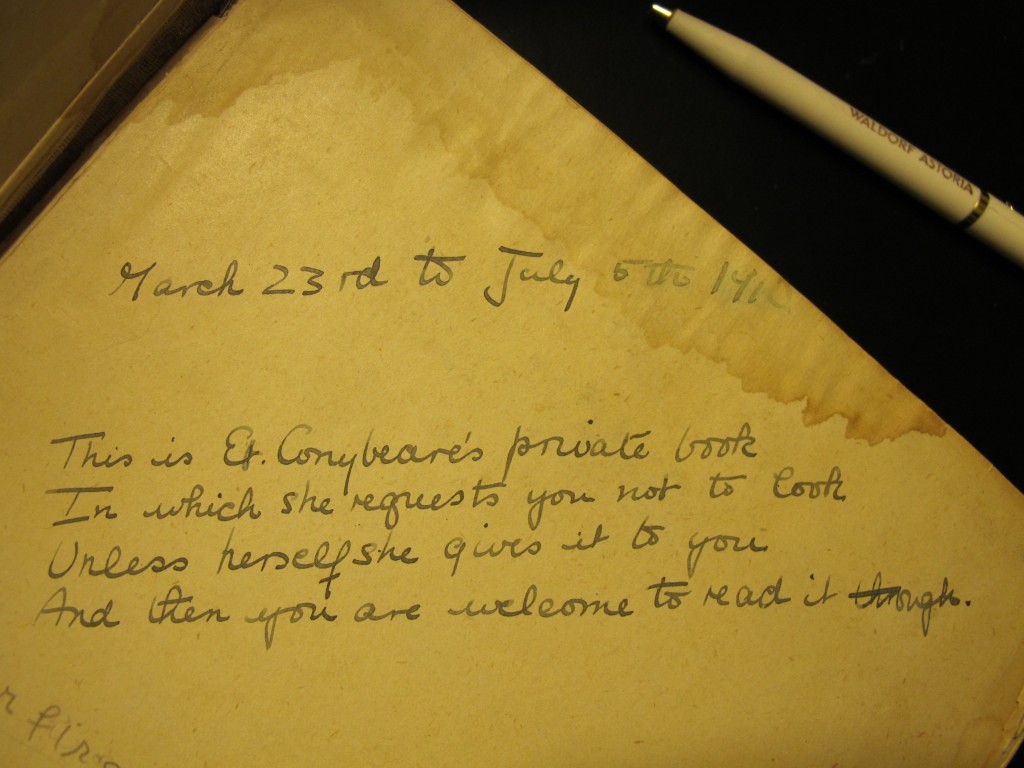 March 23rd to July 5th
This is Et. Conybeare's private book
In which she requests you not to look
Unless herself she gives it to you
And then you are welcome to read it through.
WALDORF ASTORIA